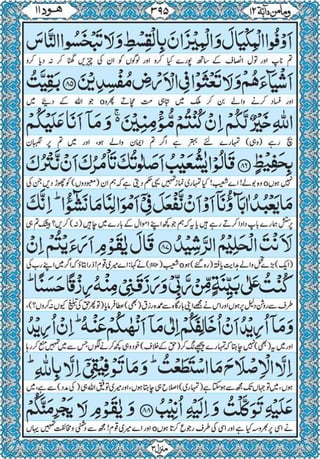 ومامن دآبة ١٢ ۳۹۵ هود ١١
اَوْفُوا الْمِكْيَالَ وَالْمِيْزَانَ بِالْقِسْطِ وَلَا تَبْخَسُوا النَّاسَ
تم ناپ اور تول انصاف کے ساتھ پورے کیا کرو اور لوگوں کو ان کی چیزیں گھٹا کر نہ دیا کرو
اَشْيَآءَهُمْ وَلَا تَعْثَوْا فِى الْاَرْضِ مُفْسِدِيْنَ ﴿۸۵﴾ بَقِيَّتُ
اور فساد کرنے والے بن کر ملک میں تباہی مت مچاتے پھرو۝ جو اللہ کے دیئے میں
اللّٰهِ خَيْرٌ لَّكُمْ اِنْ كُنْتُمْ مُّؤْمِنِيْنَ ۚ وَمَآ اَنَا عَلَيْكُمْ
بچ رہے (وہی) تمہارے لئے بہتر ہے اگر تم ایمان والے ہو، اور میں تم پر نگہبان
بِحَفِيْظٍ ﴿۸۶﴾ قَالُوْا يٰشُعَيْبُ اَصَلٰوتُكَ تَاْمُرُكَ اَنْ نَّتْرُكَ
نہیں ہوں۝ وہ بولے: اے شعیب! کیا تمہاری نماز تمہیں یہی حکم دیتی ہے کہ ہم ان (معبودوں) کو چھوڑ دیں جن کی
مَا يَعْبُدُ اٰبَآؤُنَآ اَوْ اَنْ نَّفْعَلَ فِىْٓ اَمْوَالِنَا مَا نَشٰٓؤُا ؕ اِنَّكَ
پرستش ہمارے باپ دادا کرتے رہے ہیں یا یہ کہ ہم جو کچھ اپنے اموال کے بارے میں چاہیں (نہ) کریں؟ بیشک تم ہی
لَاَنْتَ الْحَلِيْمُ الرَّشِيْدُ ﴿۸۷﴾ قَالَ يٰقَوْمِ اَرَءَيْتُمْ اِنْ
(ایک) بڑے تحمل والے ہدایت یافتہ (رہ گئے) ہو۝ شعیب نے کہا: اے میری قوم! ذرا بتاؤ کہ اگر میں اپنے رب کی
كُنْتُ عَلٰى بَيِّنَةٍ مِّنْ رَّبِّىْ وَرَزَقَنِىْ مِنْهُ رِزْقًا حَسَنًا ؕ
طرف سے روشن دلیل پر ہوں اور اس نے مجھے اپنی بارگاہ سے عمدہ رزق (بھی) عطا فرمایا (تو پھر حق کی تبلیغ کیوں نہ کروں؟)،
وَمَآ اُرِيْدُ اَنْ اُخَالِفَكُمْ اِلٰى مَآ اَنْهٰىكُمْ عَنْهُ ؕ اِنْ اُرِيْدُ
اور میں یہ (بھی) نہیں چاہتا کہ تمہارے پیچھے لگ کر (حق کے خلاف) خود وہی کچھ کرنے لگوں جس سے میں تمہیں منع کر رہا
اِلَّا الْاِصْلَاحَ مَا اسْتَطَعْتُ ؕ وَمَا تَوْفِيْقِىْٓ اِلَّا بِاللّٰهِ ؕ
ہوں، میں تو جہاں تک مجھ سے ہو سکتا ہے (تمہاری) اصلاح ہی چاہتا ہوں، اور میری توفیق اللہ ہی (کی مدد) سے ہے، میں
عَلَيْهِ تَوَكَّلْتُ وَاِلَيْهِ اُنِيْبُ ﴿۸۸﴾ وَيٰقَوْمِ لَا يَجْرِمَنَّكُمْ
نے اسی پر بھروسہ کیا ہے اور اسی کی طرف رجوع کرتا ہوں۝ اور اے میری قوم! مجھ سے دشمنی و مخالفت تمہیں یہاں
منزل ۳